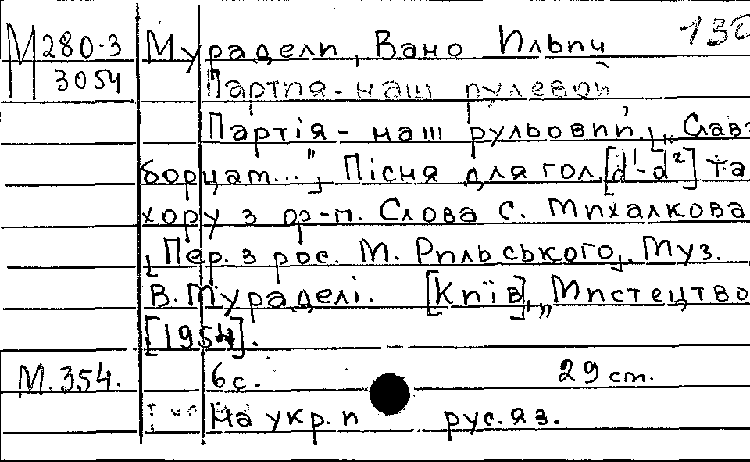 М280-3 Мурадели, Вано Ильич 132
3054 Партия - наш рулевой
Партія - наш рульовий. [„Слава
борцам..."]. Пісня для гол. [d¹-d²] та
хору з ф-п. Слова С. Михалкова
[Пер. з рос. М. Рильського]. Муз.
В. Мураделі. [Київ], „Мистецтво
[1954].
М.354. 6 с. 29 cm.
На укр. и рус. яз.